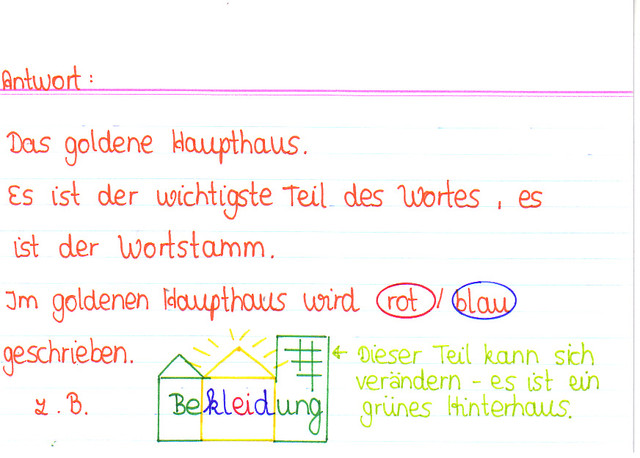 Antwort:
Das goldene Haupthaus.
Es ist der wichtigste Teil des Wortes, es
ist der Wortstamm.
Im goldenen Haupthaus wird rot / blau
geschrieben.
← Dieser Teil kann sich
verändern - es ist ein
grünes Hinterhaus.
z. B.
Bekleidung